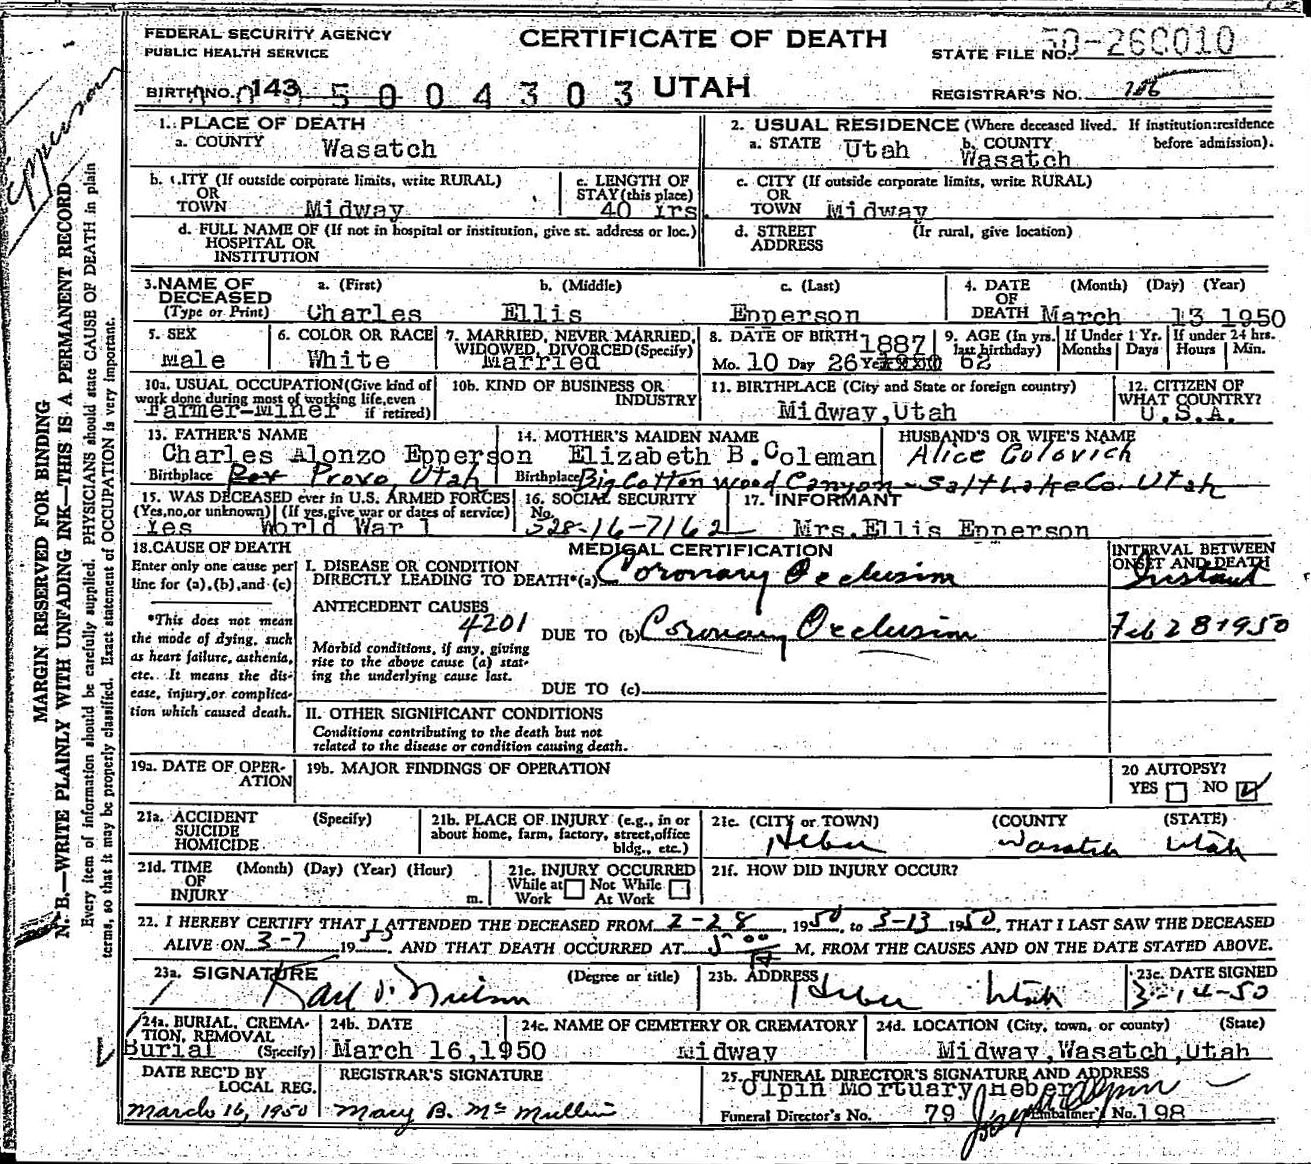 FEDERAL SECURITY AGENCY
PUBLIC HEALTH SERVICE
CERTIFICATE OF DEATH
STATE FILE NO. 50-260010
BIRTH NO. 143 5 0 0 4 3 0 3 UTAH
REGISTRAR'S NO.
Epperson
MARGIN RESERVED FOR BINDING
N. B.—WRITE PLAINLY WITH UNFADING INK—THIS IS A PERMANENT RECORD
Every item of information should be carefully supplied. PHYSICIANS should state CAUSE OF DEATH in plain
terms, so that it may be properly classified. Exact statement of OCCUPATION is very important.
1. PLACE OF DEATH
a. COUNTY Wasatch
2. USUAL RESIDENCE (Where deceased lived. If institution:residence
before admission).
a. STATE Utah b. COUNTY Wasatch
b. CITY (If outside corporate limits, write RURAL)
OR
TOWN Midway
c. LENGTH OF
STAY (this place)
40 Yrs.
c. CITY (If outside corporate limits, write RURAL)
OR
TOWN Midway
d. FULL NAME OF (If not in hospital or institution, give st. address or loc.)
HOSPITAL OR
INSTITUTION
d. STREET (If rural, give location)
ADDRESS
3. NAME OF a. (First) b. (Middle) c. (Last)
DECEASED
(Type or Print) Charles Ellis Epperson
4. DATE (Month) (Day) (Year)
OF
DEATH March 13 1950
5. SEX
Male
6. COLOR OR RACE
White
7. MARRIED, NEVER MARRIED,
WIDOWED, DIVORCED (Specify)
Married
8. DATE OF BIRTH 1887
Mo. 10 Day 26 Year 1950
9. AGE (In yrs.
last birthday)
62
If Under 1 Yr.
Months Days
If under 24 hrs.
Hours Min.
10a. USUAL OCCUPATION (Give kind of
work done during most of working life, even
if retired)
Farmer-Miner
10b. KIND OF BUSINESS OR
INDUSTRY
11. BIRTHPLACE (City and State or foreign country)
Midway,Utah
12. CITIZEN OF
WHAT COUNTRY?
U.S.A.
13. FATHER'S NAME
Charles Alonzo Epperson
Birthplace Provo, Utah
14. MOTHER'S MAIDEN NAME
Elizabeth B. Coleman
Birthplace Big Cotton wood Canyon - Salt Lake Co. Utah
HUSBAND'S OR WIFE'S NAME
Alice Golovich
15. WAS DECEASED ever in U.S. ARMED FORCES
(Yes,no,or unknown) (If yes, give war or dates of service)
Yes World War 1
16. SOCIAL SECURITY
No.
528-16-7162
17. INFORMANT
Mrs.Ellis Epperson
18. CAUSE OF DEATH
Enter only one cause per
line for (a), (b), and (c)
*This does not mean
the mode of dying, such
as heart failure, asthenia,
etc. It means the dis-
ease, injury, or complica-
tion which caused death.
MEDICAL CERTIFICATION
I. DISEASE OR CONDITION
DIRECTLY LEADING TO DEATH*(a) Coronary Occlusion
INTERVAL BETWEEN
ONSET AND DEATH
Instant
ANTECEDENT CAUSES
4201
DUE TO (b) Coronary Occlusion Feb 28 1950
Morbid conditions, if any, giving
rise to the above cause (a) stat-
ing the underlying cause last.
DUE TO (c)
II. OTHER SIGNIFICANT CONDITIONS
Conditions contributing to the death but not
related to the disease or condition causing death.
19a. DATE OF OPER-
ATION
19b. MAJOR FINDINGS OF OPERATION
20 AUTOPSY?
YES NO
21a. ACCIDENT (Specify)
SUICIDE
HOMICIDE
21b. PLACE OF INJURY (e.g., in or
about home, farm, factory, street, office
bldg., etc.)
21c. (CITY or TOWN) (COUNTY (STATE)
Heber Wasatch Utah
21d. TIME (Month) (Day) (Year) (Hour)
OF
INJURY m.
21e. INJURY OCCURRED
While at Not While
Work At Work
21f. HOW DID INJURY OCCUR?
22. I HEREBY CERTIFY THAT I ATTENDED THE DECEASED FROM 2-28, 1950, to 3-13 1950, THAT I LAST SAW THE DECEASED
ALIVE ON 3-7 1950 AND THAT DEATH OCCURRED AT 5:00 M, FROM THE CAUSES AND ON THE DATE STATED ABOVE.
23a. SIGNATURE (Degree or title)
Karl O. Nielson
23b. ADDRESS
Heber Utah
23c. DATE SIGNED
3-14-50
24a. BURIAL, CREMA-
TION, REMOVAL
Burial (Specify)
24b. DATE
March 16,1950
24c. NAME OF CEMETERY OR CREMATORY
Midway
24d. LOCATION (City, town, or county) (State)
Midway,Wasatch,Utah
DATE REC'D BY
LOCAL REG.
March 16, 1950
REGISTRAR'S SIGNATURE
Mary B. McMullin
25. FUNERAL DIRECTOR'S SIGNATURE AND ADDRESS
Olpin Mortuary Heber
Funeral Director's No. 79 Embalmer's No. 198